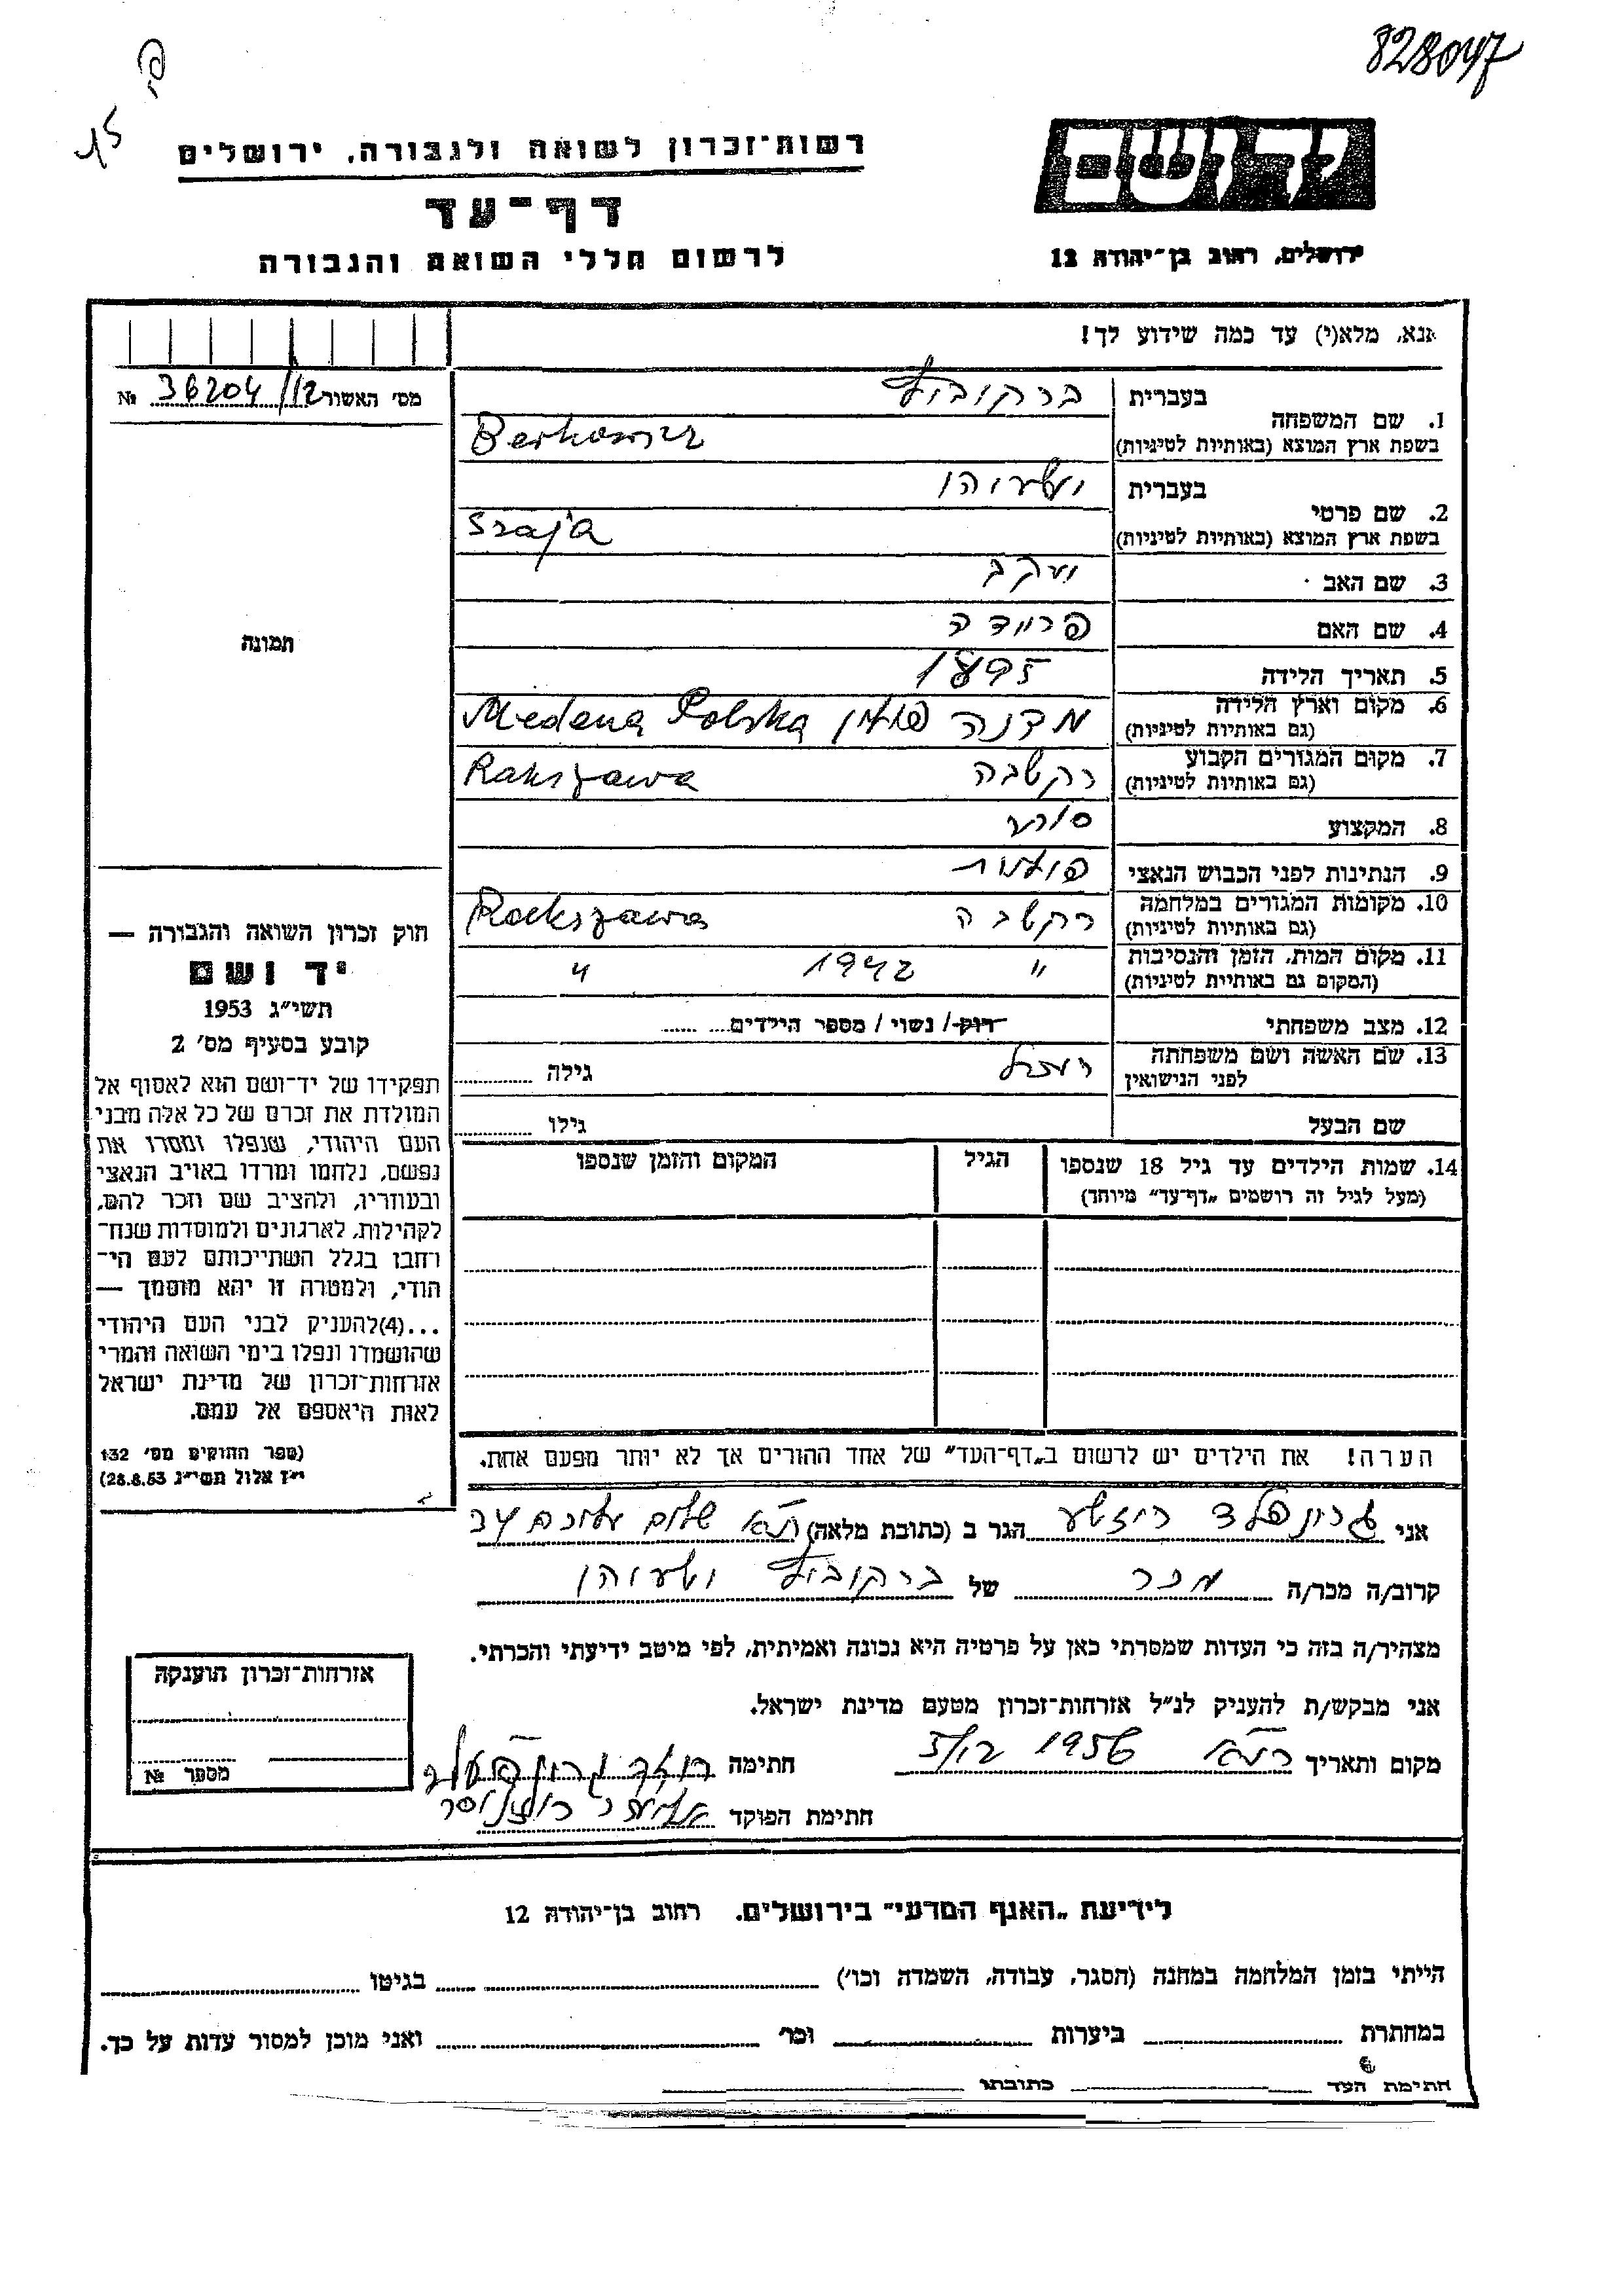 828047
15
יד ושם
ירושלים, רחוב בן־יהודה 12
רשות־זכרון לשואה ולגבורה, ירושלים
דף־עד
לרשום חללי השואה והגבורה
אנא, מלא(י) עד כמה שידוע לך!
מס׳ האשור 12/36204 №
תמונה
1. שם המשפחה
בעברית ברקוביץ
בשפת ארץ המוצא (באותיות לטיניות) Berkowicz
2. שם פרטי
בעברית ישעיהו
בשפת ארץ המוצא (באותיות לטיניות) Szaja
3. שם האב יעקב
4. שם האם פריידה
5. תאריך הלידה 1895
6. מקום וארץ הלידה מדנה פולין Medena Polska
(גם באותיות לטיניות)
7. מקום המגורים הקבוע רקשבה Rakszawa
(גם באותיות לטיניות)
8. המקצוע סוחר
9. הנתינות לפני הכבוש הנאצי פולנית
10. מקומות המגורים במלחמה רקשבה Rakszawa
(גם באותיות לטיניות)
11. מקום המות, הזמן והנסיבות " 1942 "
(המקום גם באותיית לטיניות)
12. מצב משפחתי רוק / נשוי / מספר הילדים
13. שם האשה ושם משפחתה רחל גילה
לפני הנישואין
שם הבעל גילו
14. שמות הילדים עד גיל 18 שנספו הגיל המקום והזמן שנספו
(מעל לגיל זה רושמים „דף־עד” מיוחד)
הערה! את הילדים יש לרשום ב„דף־העד” של אחד ההורים אך לא יותר מפעם אחת.
חוק זכרון השואה והגבורה —
יד ושם
תשי״ג 1953
קובע בסעיף מס׳ 2
תפקידו של יד־ושם הוא לאסוף אל
המולדת את זכרם של כל אלה מבני
העם היהודי, שנפלו ומסרו את
נפשם, נלחמו ומרדו באויב הנאצי
ובעוזריו, ולהציב שם וזכר להם,
לקהילות, לארגונים ולמוסדות שנח־
רחבו בגלל השתייכותם לעם הי־
הודי, ולמטרה זו יהא מוסמך —
...(4)להעניק לבני העם היהודי
שהושמדו ונפלו בימי השואה והמרי
אזרחות־זכרון של מדינת ישראל
לאות היאספם אל עמם.
(ספר החוקים מס׳ 132
י״ז אלול תשי״ג 28.8.53)
אני גרונפלד רוזשע הגר ב (כתובת מלאה) ת״א שלום עליכם 42
קרוב/ה מכר/ה מכר של ברקוביץ ישעיהו
מצהיר/ה בזה כי העדות שמסרתי כאן על פרטיה היא נכונה ואמיתית, לפי מיטב ידיעתי והכרתי.
אני מבקש/ת להעניק לנ״ל אזרחות־זכרון מטעם מדינת ישראל.
מקום ותאריך ת״א 1956 חתימה
חתימת הפוקד
אזרחות־זכרון הוענקה
מספר №
לידיעת „האגף המדעי” בירושלים, רחוב בן־יהודה 12
הייתי בזמן המלחמה במחנה (הסגר, עבודה, השמדה וכו׳) בגיטו
במחתרת ביערות וכו׳ ואני מוכן למסור עדות על כך.
חתימת העד כתובתו